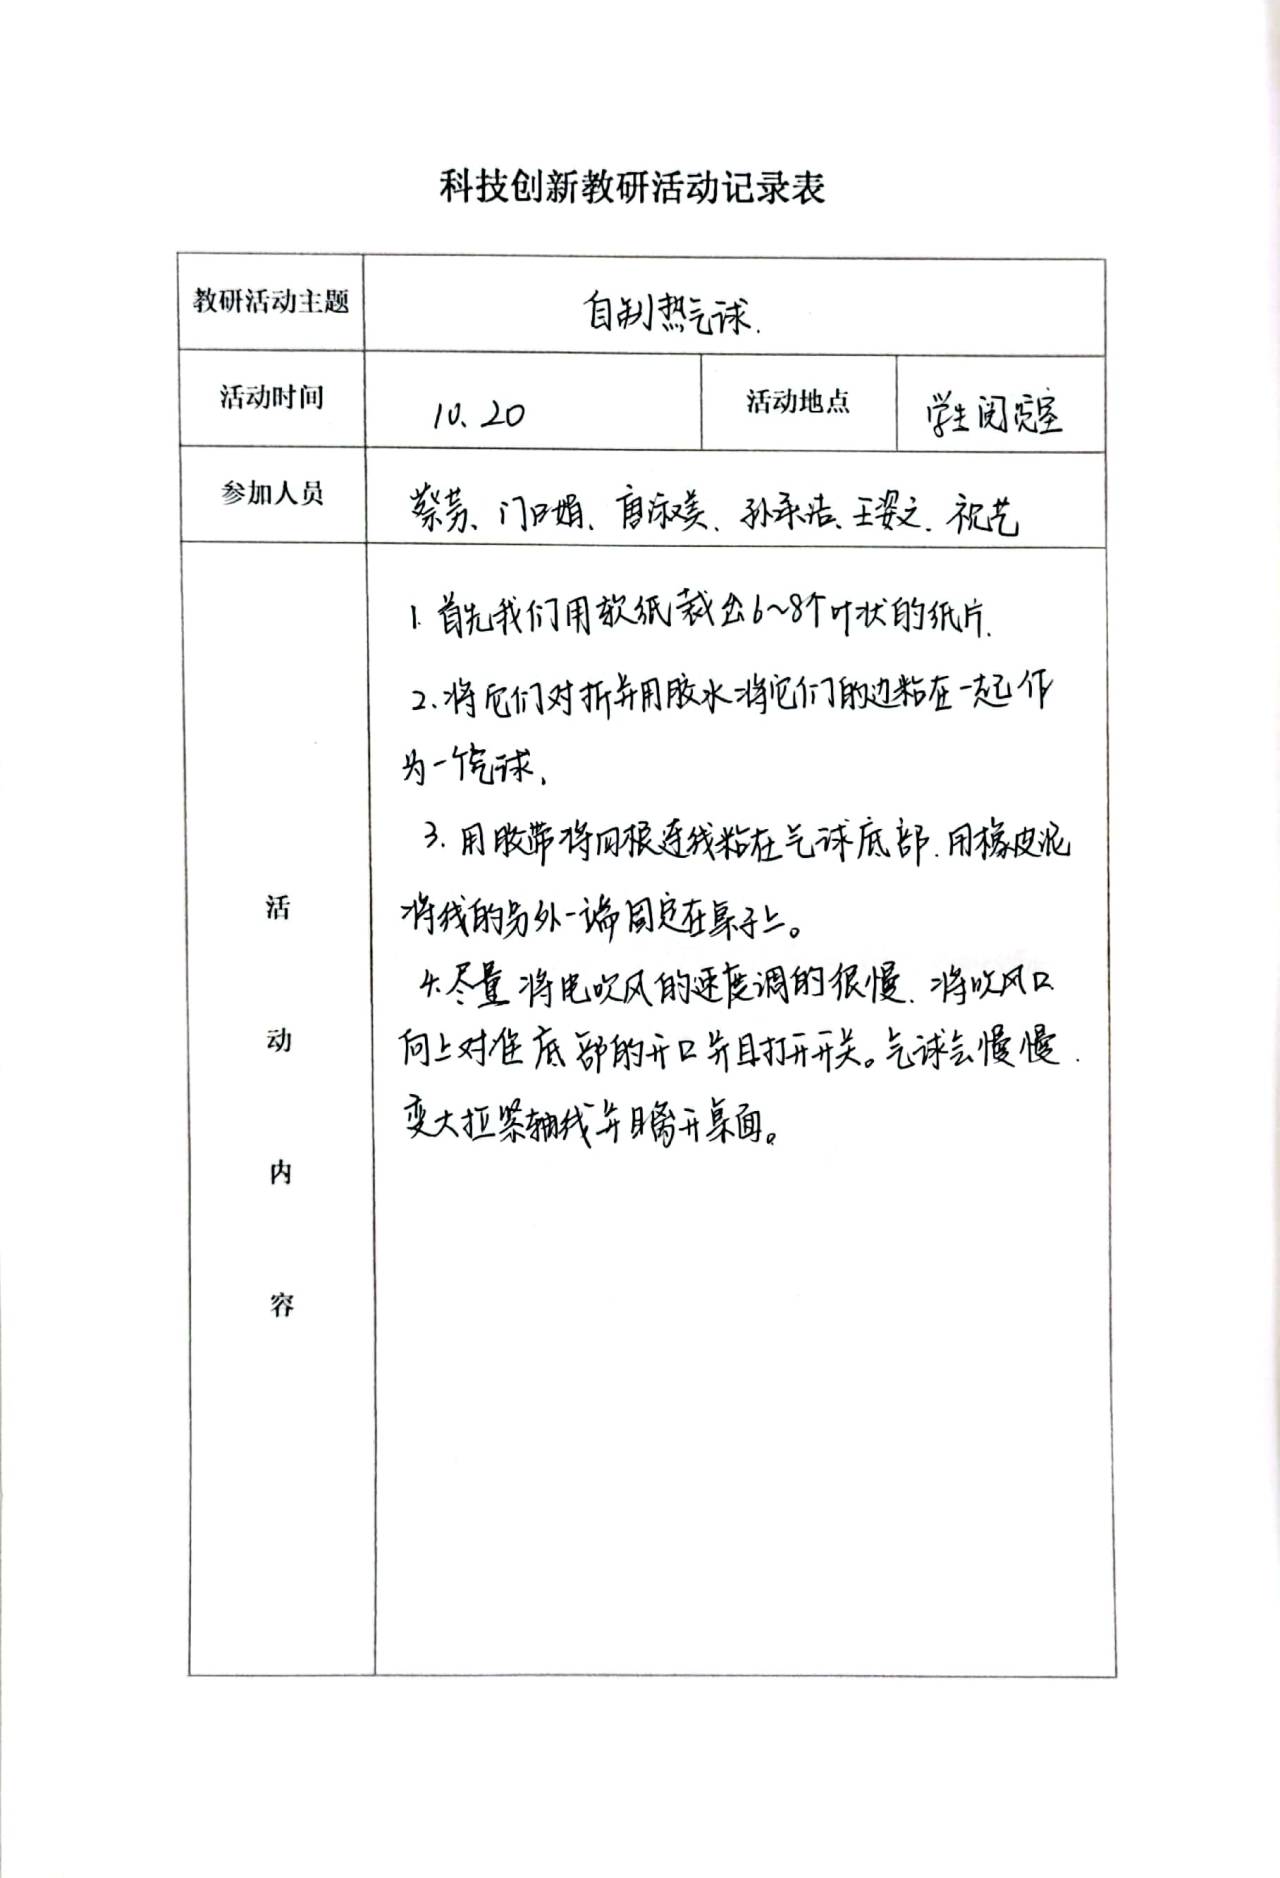 科技创新教研活动记录表
教研活动主题 自制热气球.
活动时间 10、20 活动地点 学生阅览室
参加人员 蔡芳、门娟、唐淑美、孙承浩、王姿文、祝艺
1. 首先我们用软纸裁出6~8个叶状的纸片.
2、将它们对折并用胶水将它们的边粘在一起作
为一个气球、
3. 用胶带将四根连线粘在气球底部.用橡皮泥
将线的另外一端固定在桌子上。
4.尽量将电吹风的速度调的很慢.将吹风口
向上对准底部的开口并且打开开关。气球会慢慢.
变大拉紧轴线并且离开桌面。
活
动
内
容